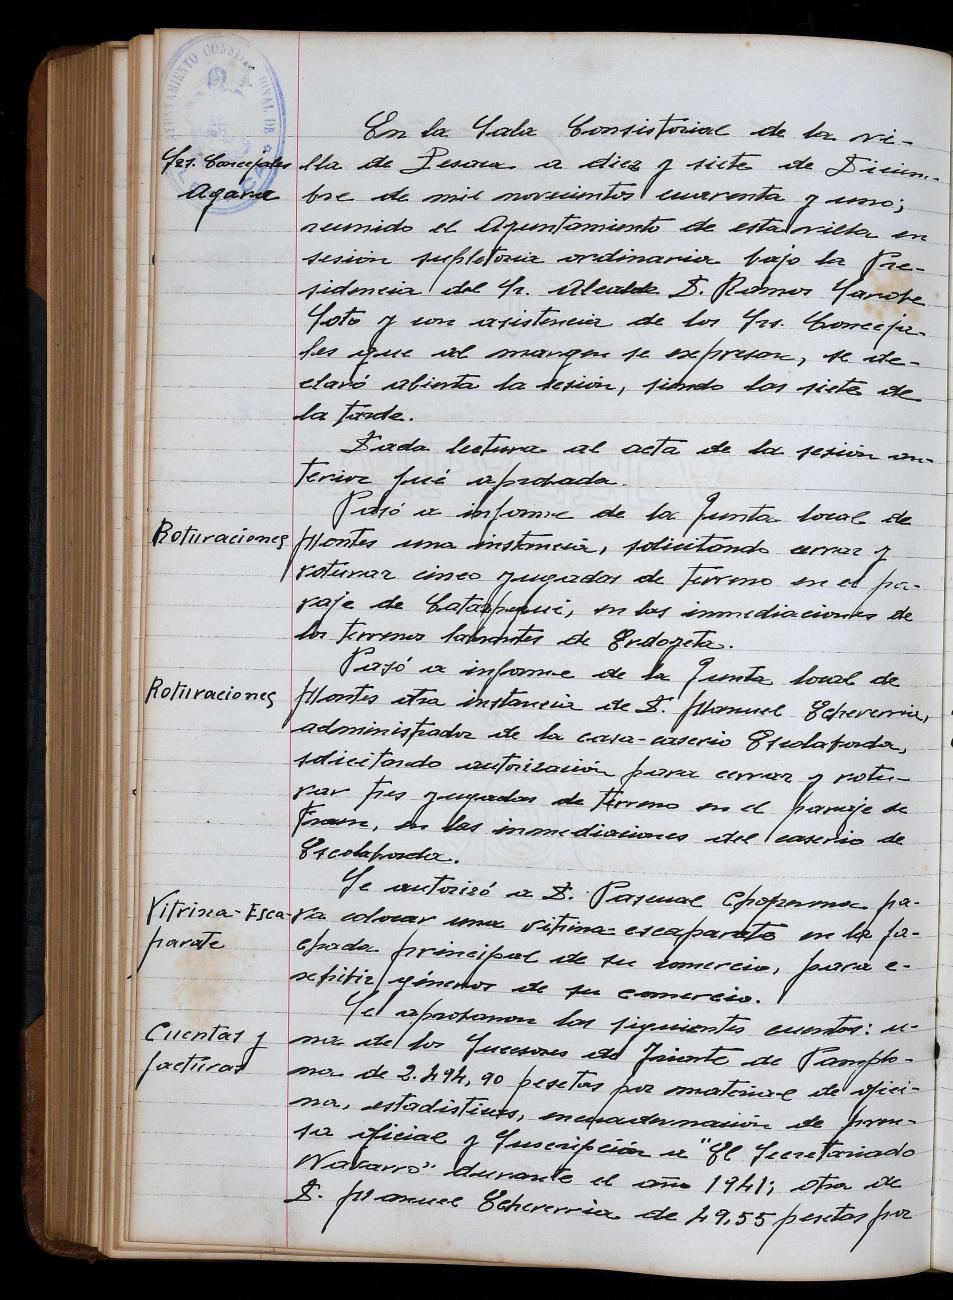 AYUNTAMIENTO CONSTITUCIONAL DE
En la Sala Consistorial de la vi-
Srs. Concejales
Agara
lla de Lesaca a diez y siete de Diciem-
bre de mil novecientos cuarenta y uno;
reunido el Ayuntamiento de esta villa en
sesion supletoria ordinaria bajo la Pre-
sidencia del Sr. Alcalde D. Ramos
Soto y con asistencia de los Srs. Conceja-
les que al margen se expresan, se de-
claró abierta la sesión, siendo las siete de
la tarde.
Dada lectura al acta de la sesión an-
terior fué aprobada.
Roturaciones
Pasó a informe de la Junta local de
Montes una instancia, solicitando cerrar y
roturar cinco yugadas de terreno en el pa-
raje de en las inmediaciones de
los terrenos de Erdozeta.
Roturaciones
Pasó a informe de la Junta local de
Montes otra instancia de D. Manuel Echeverria,
administrador de la casa-caserio Escolaborda,
solicitando autorización para cerrar y rotu-
rar tres yugadas de terreno en el paraje de
en las inmediaciones del caserio de
Escolaborda.
Vitrina-Esca-
parate
Se autorizó a D. Pascual pa-
ra colocar una vitrina-escaparate en la fa-
chada principal de su comercio, para e-
xhibir géneros de su comercio.
Cuentas y
facturas
Se aprobaron las siguientes cuentas: u-
na de los Sucesores de de Pamplo-
na de 2.494,90 pesetas por material de ofici-
na, estadisticas, encuadernación de pren-
sa oficial y suscripción a "El Secretariado
Navarro" durante el año 1941; otra de
D. Manuel Echeverria de 49,55 pesetas por